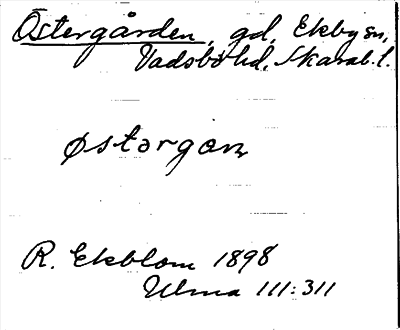 Östergården, gd, Ekby sn,
Vadsbo hd, Skarab. l.
østərgaɳ
R. Ekblom 1898
Ulma 111:311